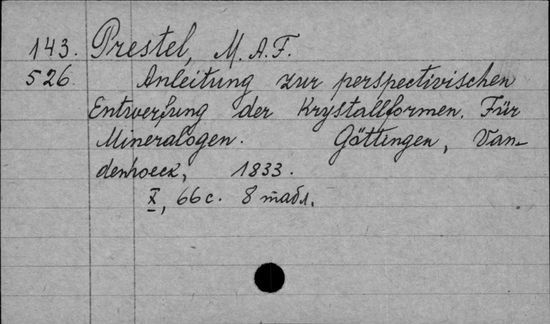 143. Prestel, M. A. F.
526. Anleitung zur perspectivischen
Entwerfung der Krystallformen. Für
Mineralogen. Göttingen, Van-
denhoeck, 1833.
X, 66 с. 8 табл.